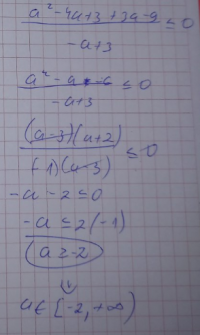 a² - 4a + 3 + 3a - 9 ≤ 0
-a + 3
a² - a - 6 ≤ 0
-a + 3
(a-3)(a+2) ≤ 0
(-1)(a-3)
-a - 2 ≤ 0
-a ≤ 2 (-1)
a ≥ -2
⇓
a ∈ [-2, +∞)